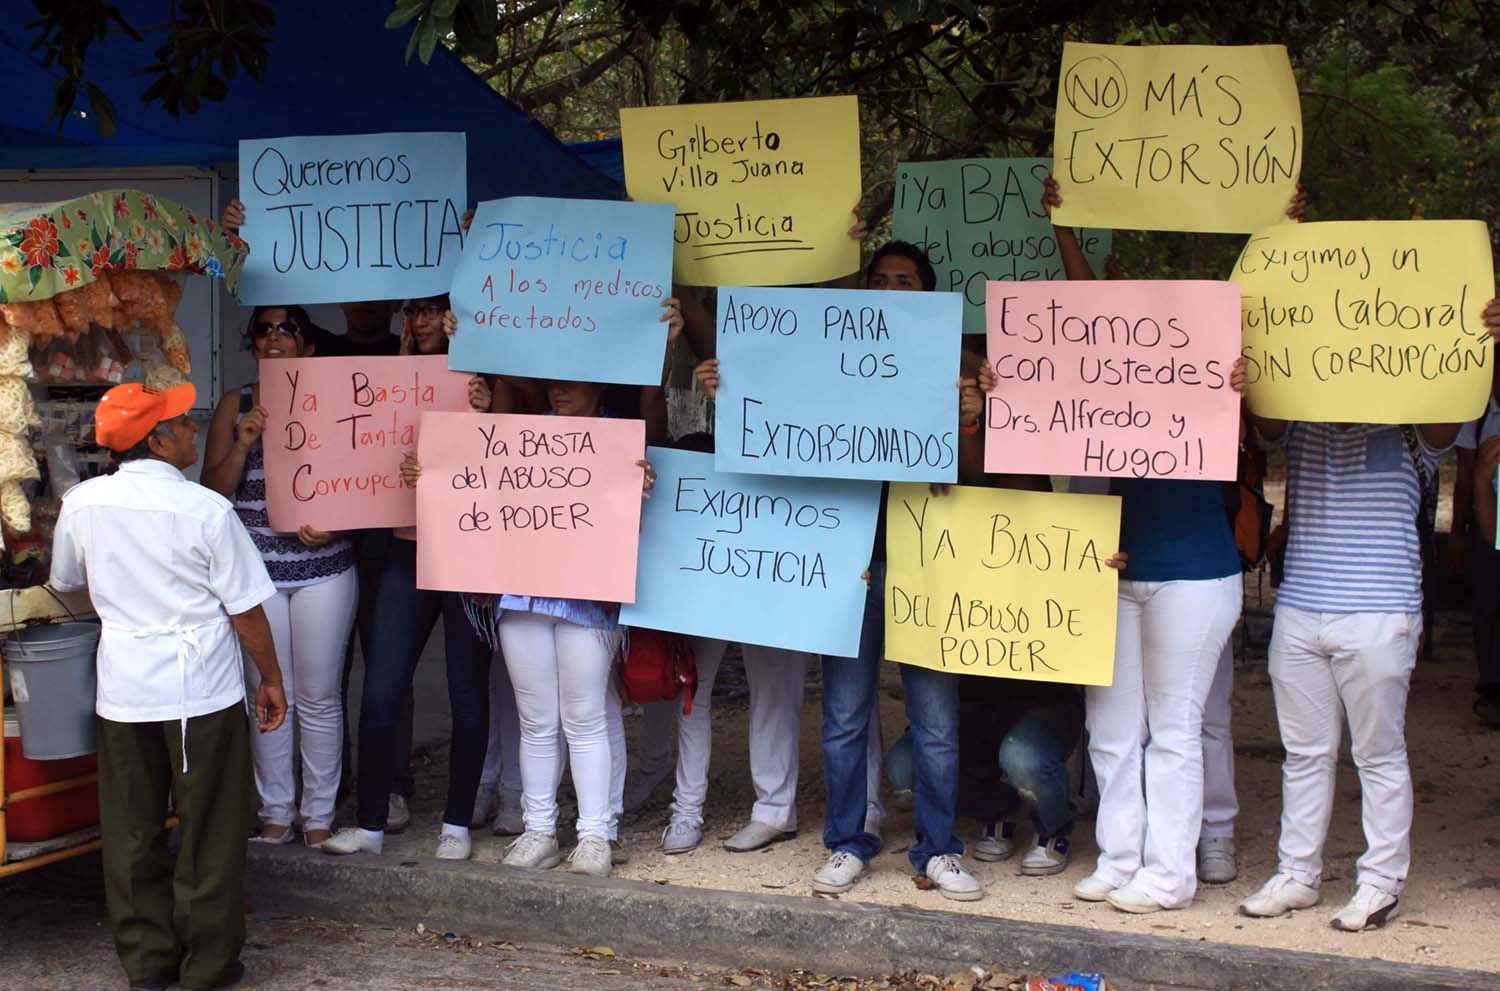 Queremos
JUSTICIA
Justicia
A los medicos
afectados
Gilberto
Villa Juana
Justicia
¡Ya BAS
del abuso de
PODER
NO MÁS
EXTORSIÓN
Exigimos un
futuro laboral
SIN CORRUPCIÓN
Ya Basta
De Tanta
Corrupci
Ya BASTA
del ABUSO
de PODER
Exigimos
JUSTICIA
APOYO PARA
LOS
EXTORSIONADOS
Ya BASTA
DEL ABUSO DE
PODER
Estamos
con ustedes
Drs. Alfredo y
Hugo!!